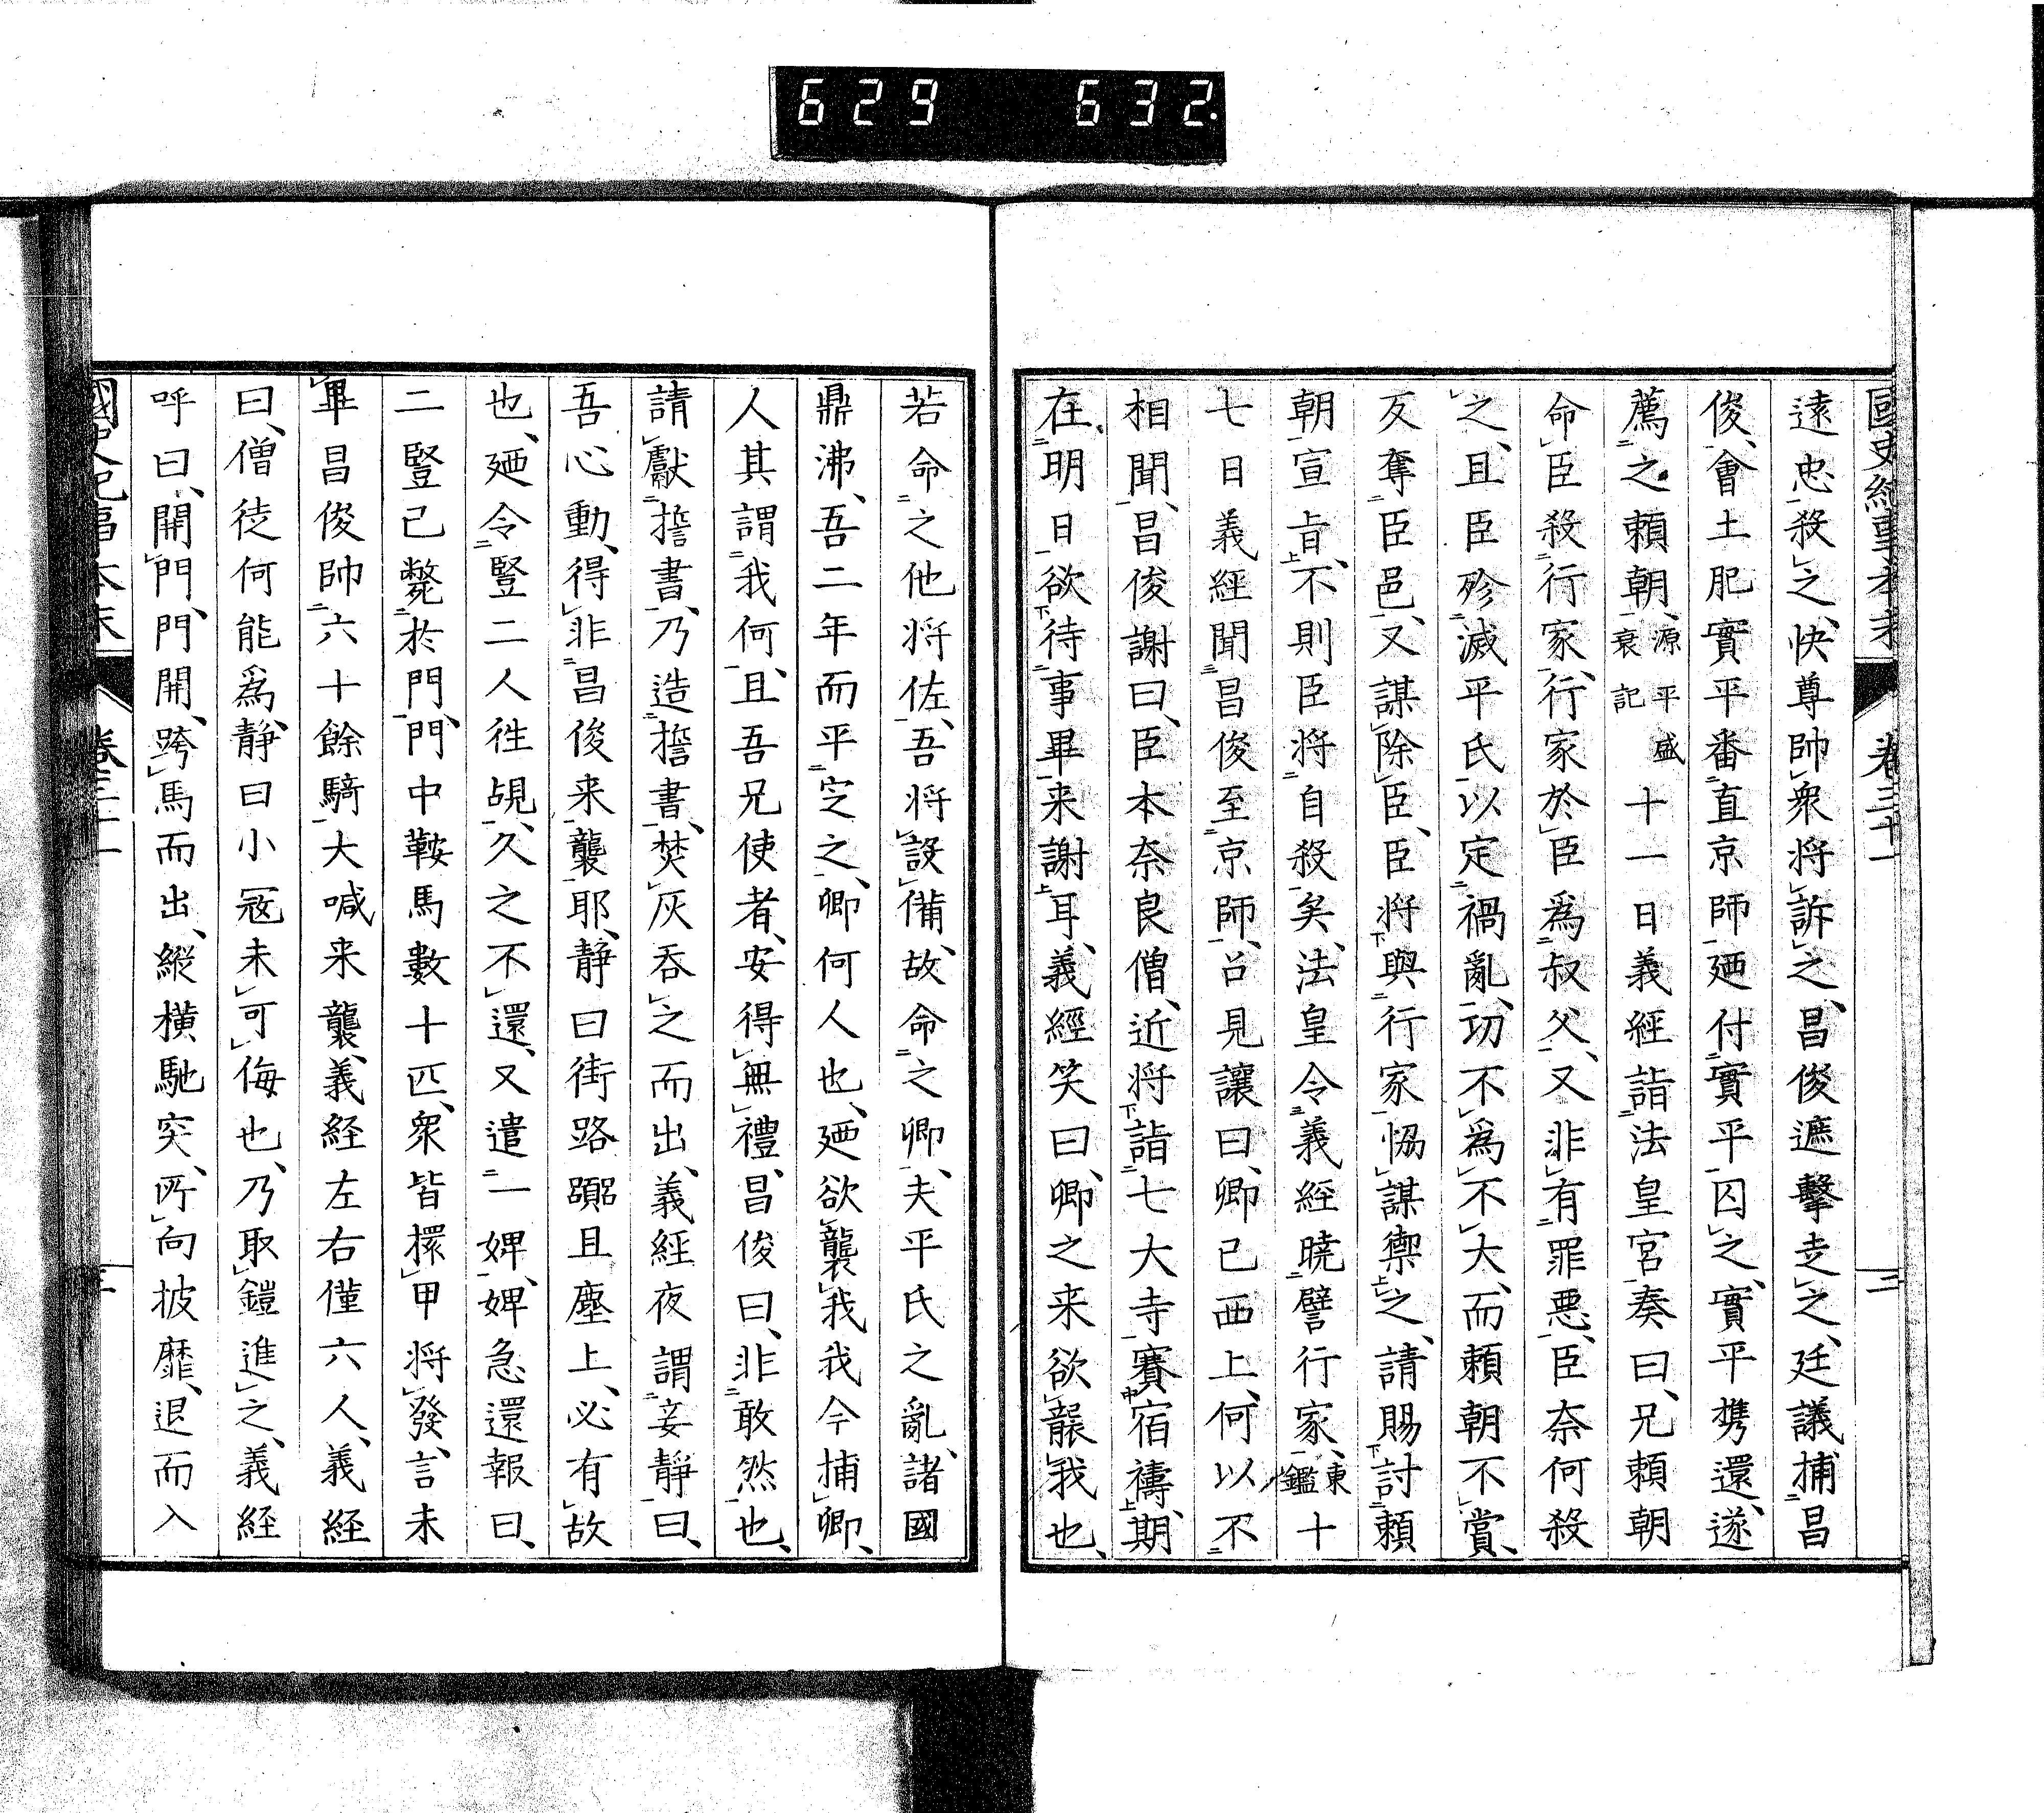 629 632.
國史紀事本末 卷三十一 三
遠忠殺之、快尊帥衆將訴之、昌俊遮擊走之、廷議捕昌
俊、會土肥實平番直京師、廼付實平囚之、實平携還、遂
薦之賴朝、源平盛衰記十一日義經詣法皇宮奏曰、兄賴朝
命臣殺行家、行家於臣爲叔父、又非有罪悪、臣奈何殺
之、且臣殄滅平氏以定禍亂、功不爲不大、而賴朝不賞、
反奪臣邑、又謀除臣、臣將與行家恊謀禦之、請賜討賴
朝宣旨、不則臣將自殺矣、法皇令義經曉譬行家、東鑑十
七日義經聞昌俊至京師、召見讓曰、卿已西上、何以不
相聞、昌俊謝曰、臣本奈良僧、近將詣七大寺賽宿禱、期
在明日、欲待事畢来謝耳、義經笑曰、卿之来欲襲我也、
若命之他將佐、吾將設備、故命之卿、夫平氏之亂、諸國
鼎沸、吾二年而平定之、卿何人也、廼欲襲我、我今捕卿、
人其謂我何、且吾兄使者、安得無禮、昌俊曰、非敢然也、
請獻誓書、乃造誓書、焚灰呑之而出、義經夜謂妾靜曰、
吾心動、得非昌俊来襲耶、靜曰街路踴且塵上、必有故
也、廼令豎二人往覘、久之不還、又遣一婢、婢急還報曰、
二豎已斃於門、門中鞍馬數十匹、衆皆擐甲將發、言未
畢昌俊帥六十餘騎大喊来襲、義経左右僅六人、義経
曰、僧徒何能爲、靜曰小冦未可侮也、乃取鎧進之、義経
呼曰、開門、門開、跨馬而出、縱橫馳突、所向披靡、退而入
國史紀事本末 卷三十一 三